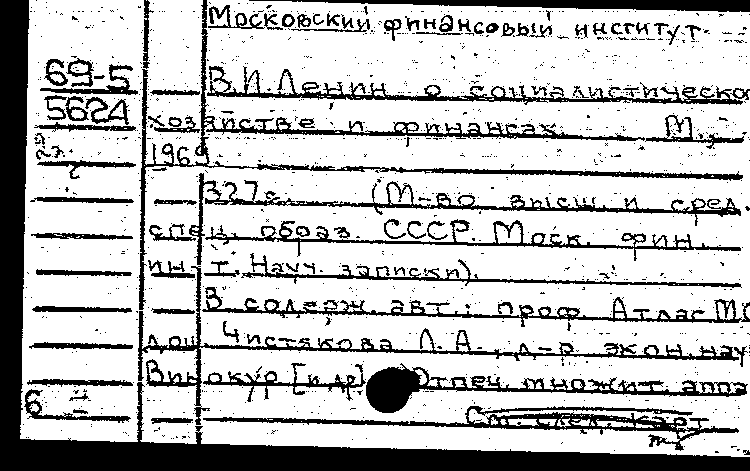 Московский финансовый институт
69-5 В.И.Ленин о социалистическо
562А хозяйстве и финансах. М.,
1969.
327с. (М-во высш. и сред.
спец. образ. СССР. Моск. фин.
ин-т. Науч. записки).
В содерж. авт.: проф. Атлас М
доц. Чистякова Л. А., д-р экон. нау
Винокур [и др] Отпеч. множит. аппа
6 См. след. карт.